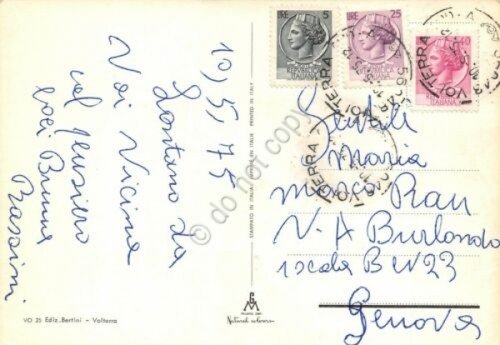 10, 5, 75
Lontano da
Voi Vicino
col pensiero
baci Bruna
Massimi
VO 25 Ediz. Bertini - Volterra
STAMPATO IN ITALIA
PRINTED IN ITALY
Natural colours
LIRE 5
REPUBBLICA ITALIANA
LIRE 25
REPUBBLICA ITALIANA
ITALIANA
VOLTERRA
VOLTERRA
VOLTERRA
Gentili
Maria
Marco
V. A Burlando
iscala B int 23
Genova
do not copy